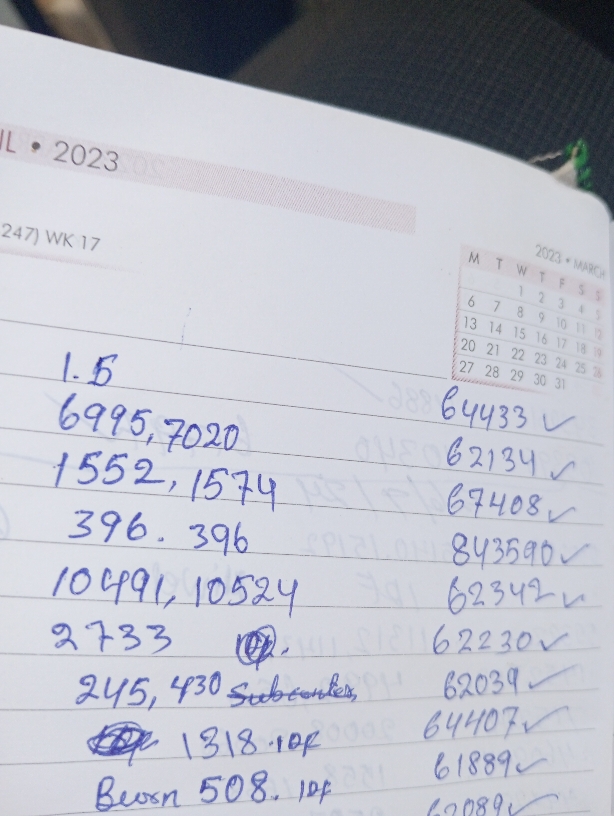 IL • 2023
247) WK 17
2023 • MARCH
M T W T F S S
1 2 3 4 5
6 7 8 9 10 11 12
13 14 15 16 17 18 19
20 21 22 23 24 25 26
27 28 29 30 31
1.5
6995, 7020 64433 ✓
1552, 1574 62134 ✓
396. 396 67408 ✓
10491, 10524 843590 ✓
2733 62342 ✓
245, 430 62230 ✓
1318 . IDF 62039 ✓
508. IDF 64407 ✓
61889 ✓
62089 ✓